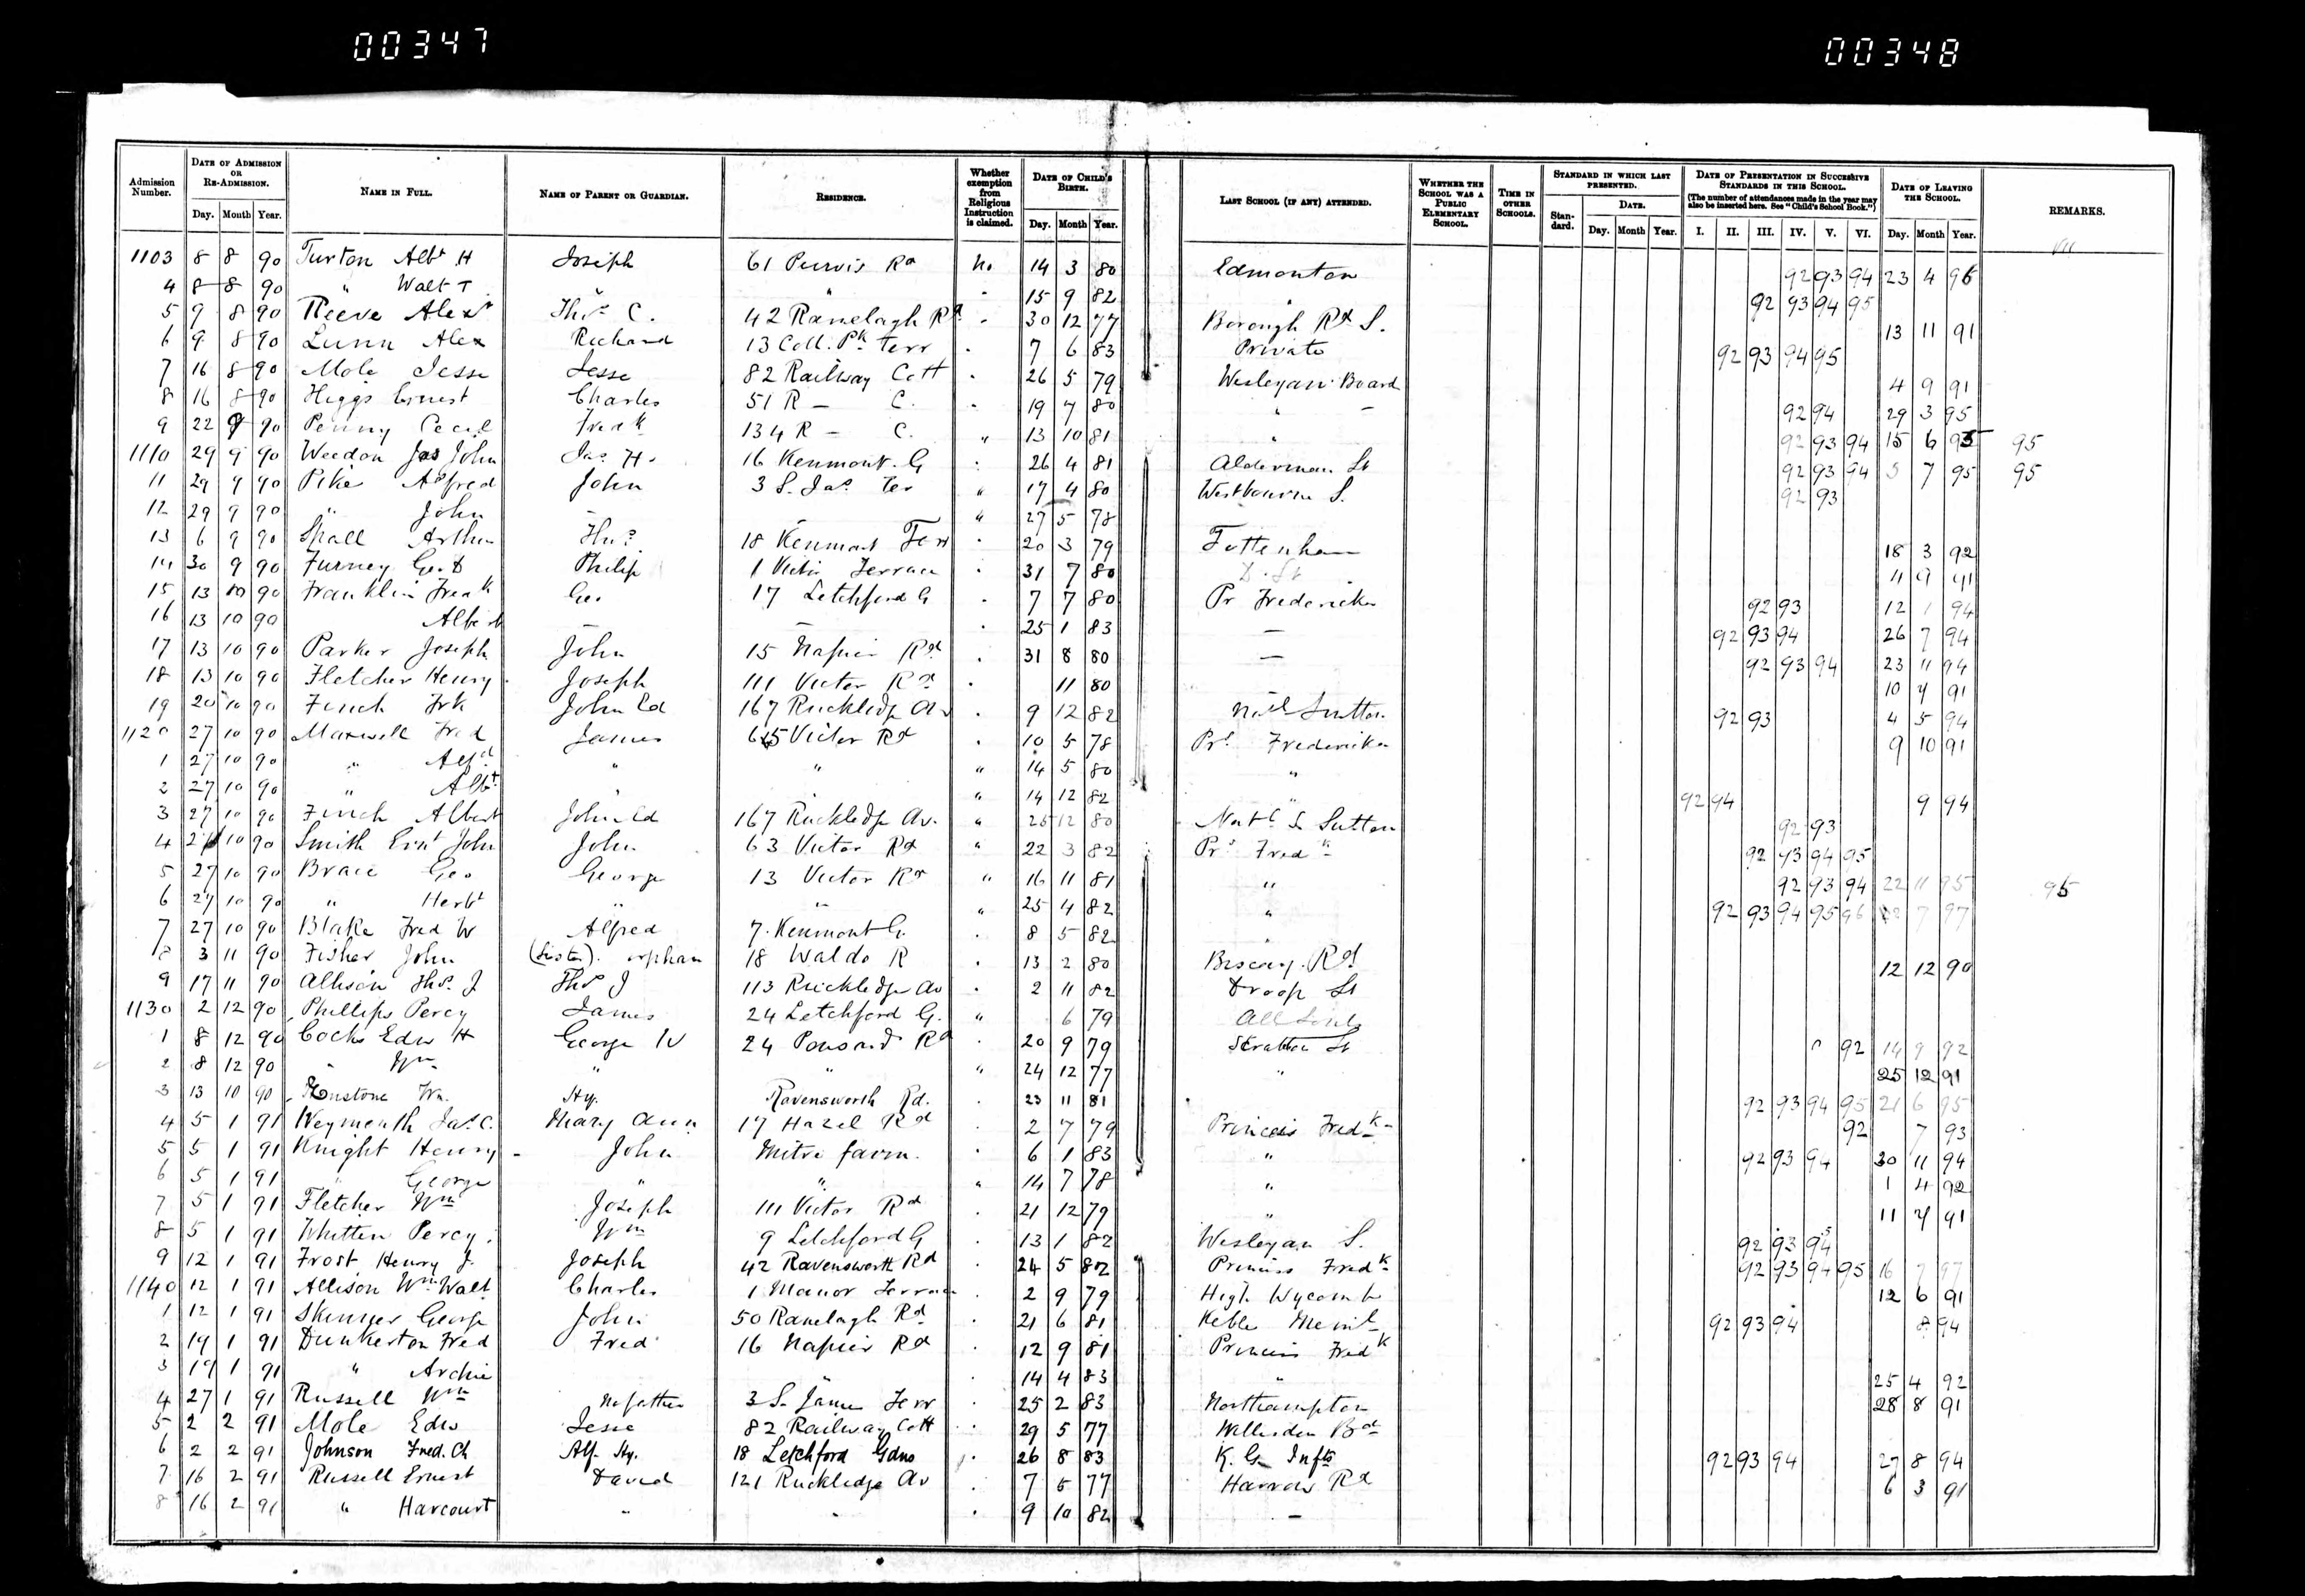 00347
00348
Admission Number.
DATE OF ADMISSION OR RE-ADMISSION.
Day. Month Year.
NAME IN FULL.
NAME OF PARENT OR GUARDIAN.
RESIDENCE.
Whether exemption from Religious Instruction is claimed.
DATE OF CHILD'S BIRTH.
Day. Month Year.
LAST SCHOOL (IF ANY) ATTENDED.
WHETHER THE SCHOOL WAS A PUBLIC ELEMENTARY SCHOOL.
TIME IN OTHER SCHOOLS.
STANDARD IN WHICH LAST PRESENTED.
Standard.
DATE.
Day. Month Year.
DATE OF PRESENTATION IN SUCCESSIVE STANDARDS IN THIS SCHOOL.
(The number of attendances made in the year may also be inserted here. See "Child's School Book.")
I. II. III. IV. V. VI.
DATE OF LEAVING THE SCHOOL.
Day. Month Year.
REMARKS.
VII
1103 8 8 90 Turton Albt H Joseph 61 Purvis Rd No 14 3 80 Edmonton 92 93 94 23 4 96
4 8 8 90 " Walt T " " 15 9 82 " 92 93 94 95
5 9 8 90 Reeve Alexr Thos C. 42 Ranelagh Rd 30 12 77 Borough Rd S. 13 11 91
6 9 8 90 Lunn Alex Richard 13 Coll. Pk Terr 7 6 83 Private 92 93 94 95
7 16 8 90 Mole Jesse Jesse 82 Railway Cott 26 5 79 Wesleyan Board 4 9 91
8 16 8 90 Higgs Ernest Charles 51 R - C. 19 7 80 " - 92 94 29 3 95
9 22 9 90 Penny Cecil Fredk 134 R - C. " 13 10 81 " 92 93 94 15 6 95 95
1110 29 9 90 Weedon Jas John Jas H. 16 Kenmont G 26 4 81 Alderman St 92 93 94 5 7 95 95
11 29 9 90 Pike Alfred John 3 S. Jas. Ter " 17 4 80 Westbourne S. 92 93
12 29 9 90 " John - - " 27 5 78
13 6 9 90 Spall Arthur Thos 18 Kenmont Terr 20 3 79 Tottenham 18 3 92
14 30 9 90 Furney Geo Philip 1 Victor Terrace 31 7 80 11 9 91
15 13 10 90 Franklin Fredk Geo 17 Letchford G 7 7 80 Pr Fredericka 92 93 12 1 94
16 13 10 90 Albert - - 25 1 83 - 92 93 94 26 7 94
17 13 10 90 Parker Joseph John 15 Napier Rd 31 8 80 - 92 93 94 23 11 94
18 13 10 90 Fletcher Henry Joseph 111 Victor Rd 11 80 10 4 91
19 20 10 90 Finch Frk John Ed 167 Rucklidge Av 9 12 82 Natl Sutton 92 93 4 5 94
1120 27 10 90 Maxwell Fred James 65 Victor Rd 10 5 78 Prs Fredericka 9 10 91
1 27 10 90 " Alfd " " " 14 5 80 "
2 27 10 90 " Albt " " " 14 12 82 " 92 94 9 94
3 27 10 90 Finch Albert John Ed 167 Rucklidge Av. " 25 12 80 Natl S Sutton 92 93
4 27 10 90 Smith Ernt John John 63 Victor Rd " 22 3 82 Prs Fredk 92 93 94 95
5 27 10 90 Brace Geo George 13 Victor Rd " 16 11 81 " 92 93 94 22 11 95 95
6 27 10 90 " Herbt " " " 25 4 82 " 92 93 94 95 96 7 97
7 27 10 90 Blake Fred W Alfred 7 Kenmont G. 8 5 82 "
8 3 11 90 Fisher John (Sister) orphan 18 Waldo R 13 2 80 Biscay Rd 12 12 90
9 17 11 90 Allison Thos. J Thos J 113 Rucklidge Av 2 11 82 Droop St
1130 2 12 90 Phillips Percy James 24 Letchford G. " 6 79 All Souls
1 8 12 90 Cocks Edw H George W 24 Ponsard Rd 20 9 79 Stratton St 92 14 9 92
2 8 12 90 " Wm " " " 24 12 77 " 25 12 91
3 13 10 90 Wm. Hy. Ravensworth Rd. 23 11 81 92 93 94 95 21 6 95
4 5 1 91 Weymouth Jas. C. Mary Ann 17 Hazel Rd 2 7 79 Princess Fredk 92 7 93
5 5 1 91 Knight Henry John Mitre farm. 6 1 83 " 92 93 94 30 11 94
6 5 1 91 " George " " " 14 7 78 " 1 4 92
7 5 1 91 Fletcher Wm Joseph 111 Victor Rd 21 12 79 " 11 4 91
8 5 1 91 Whitten Percy Wm 9 Letchford G 13 1 82 Wesleyan S. 92 93 94 5
9 12 1 91 Frost Henry J. Joseph 42 Ravensworth Rd 24 5 82 Princess Fredk 92 93 94 95 16 7 97
1140 12 1 91 Allison Wm Walt Charles 1 Manor Terrace 2 9 79 High Wycombe 12 6 91
1 12 1 91 Skinner George John 50 Ranelagh Rd 21 6 81 Keble Meml 92 93 94 8 94
2 19 1 91 Dunkerton Fred Fred 16 Napier Rd 12 9 81 Princess Fredk
3 19 1 91 " Archie " 14 4 83 " 25 4 92
4 27 1 91 Russell Wm No father 3 S. James Terr 25 2 83 Northampton 28 8 91
5 2 2 91 Mole Edw Jesse 82 Railway Cott 29 5 77 Willesden Bd
6 2 2 91 Johnson Fred. Ch Alf. Hy. 18 Letchford Gdns 26 8 83 K. G. Infts 92 93 94 27 8 94
7 16 2 91 Russell Ernest David 121 Rucklidge Av 7 5 77 Harrow Rd 6 3 91
8 16 2 91 " Harcourt " " 9 10 82 -